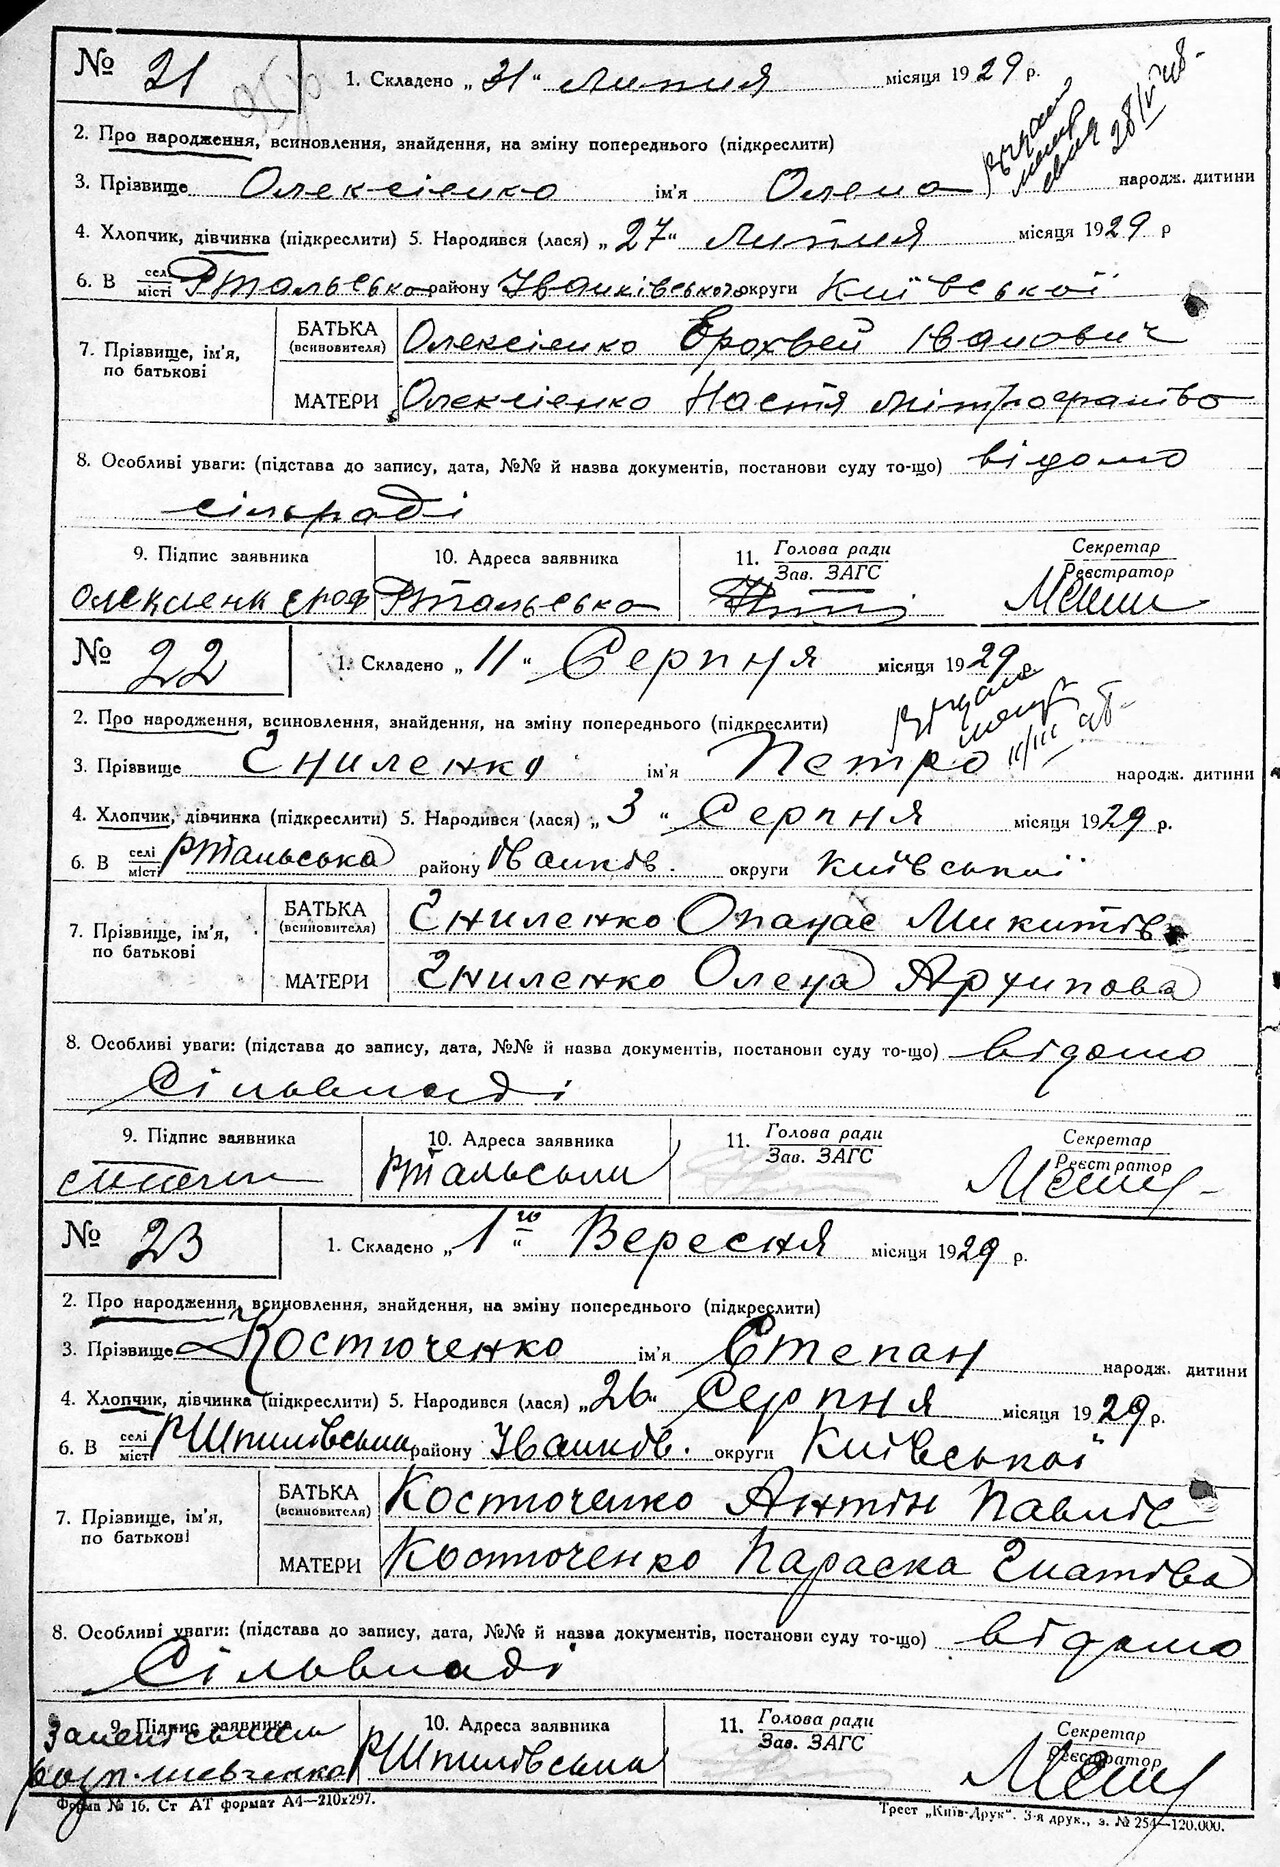 № 21 1. Складено „31“ Липня місяця 1929 р.
2. Про народження, всиновлення, знайдення, на зміну попереднього (підкреслити)
3. Прізвище Олексієнко ім'я Олена народж. дитини
28/V
4. Хлопчик, дівчинка (підкреслити) 5. Народився (лася) „27“ Липня місяця 1929 р
6. В селі місті Ртальсько району Іванківського округи Київської
7. Прізвище, ім'я, по батькові
БАТЬКА (всиновителя) Олексієнко Ерохвей Іванович
МАТЕРИ Олексієнко Настя Мітрофаніво
8. Особливі уваги: (підстава до запису, дата, №№ й назва документів, постанови суду то-що) відомо
сільраді
9. Підпис заявника 10. Адреса заявника 11. Голова ради Зав. ЗАГС Секретар Реєстратор
Ртальсько
№ 22 1. Складено „11“ Серпня місяця 1929 р.
2. Про народження, всиновлення, знайдення, на зміну попереднього (підкреслити)
3. Прізвище Гниленко ім'я Петро народж. дитини
4. Хлопчик, дівчинка (підкреслити) 5. Народився (лася) „3“ Серпня місяця 1929 р.
6. В селі місті Ртальська району Іванків. округи Київської
7. Прізвище, ім'я, по батькові
БАТЬКА (всиновителя) Гниленко Опанас Микитів
МАТЕРИ Гниленко Олена Архипова
8. Особливі уваги: (підстава до запису, дата, №№ й назва документів, постанови суду то-що) відомо
Сільраді
9. Підпис заявника 10. Адреса заявника 11. Голова ради Зав. ЗАГС Секретар Реєстратор
№ 23 1. Складено „1го“ Вересня місяця 1929 р.
2. Про народження, всиновлення, знайдення, на зміну попереднього (підкреслити)
3. Прізвище Костюченко ім'я Степан народж. дитини
4. Хлопчик, дівчинка (підкреслити) 5. Народився (лася) „26“ Серпня місяця 1929 р.
6. В селі місті РШпилівська району Іванків. округи Київської
7. Прізвище, ім'я, по батькові
БАТЬКА (всиновителя) Костюченко Антін Павлів
МАТЕРИ Костюченко Параска Гнатівa
8. Особливі уваги: (підстава до запису, дата, №№ й назва документів, постанови суду то-що) відомо
Сільраді
9. Підпис заявника 10. Адреса заявника 11. Голова ради Зав. ЗАГС Секретар Реєстратор
Шевченко РШпилівська
Форма № 16. Ст АТ формат А4—210х297. Трест „Київ-Друк“. 3-я друк., з. № 254—120.000.